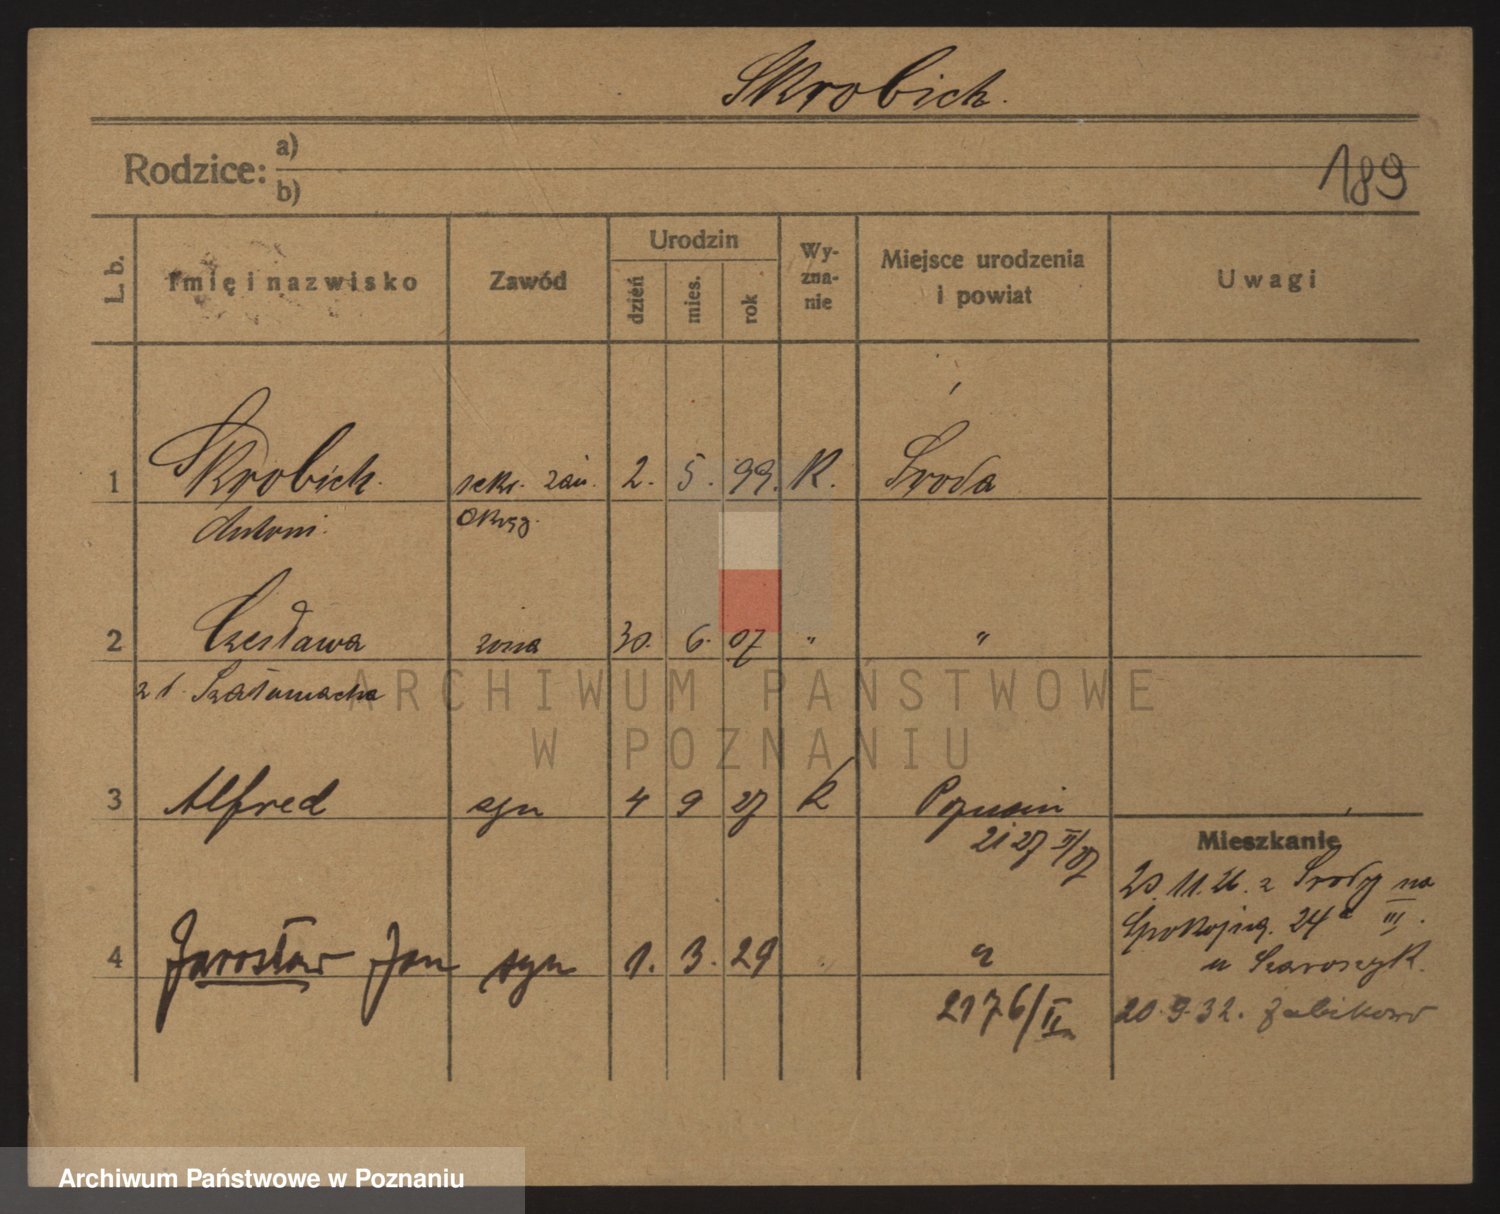 Skrobich.
Rodzice: a)
b)
189
L. b.
Imię i nazwisko
Zawód
Urodzin
dzień
mies.
rok
Wy-
zna-
nie
Miejsce urodzenia
i powiat
Uwagi
1 Skrobich. sekr. 2. 5. 99. K. Środa
Antoni. okręg.
2 Czesława żona 30. 6. 07 " "
z d. Szałamacha
3 Alfred syn 4 9 27 k Poznań
Mieszkanie
20.11.26. z Środy na
Spokojną. 24a III.
4 Jarosław Jan syn 1. 3. 29 "
u
2176/II
20.9.32. Żabikowo
ARCHIWUM PAŃSTWOWE
W POZNANIU
Archiwum Państwowe w Poznaniu